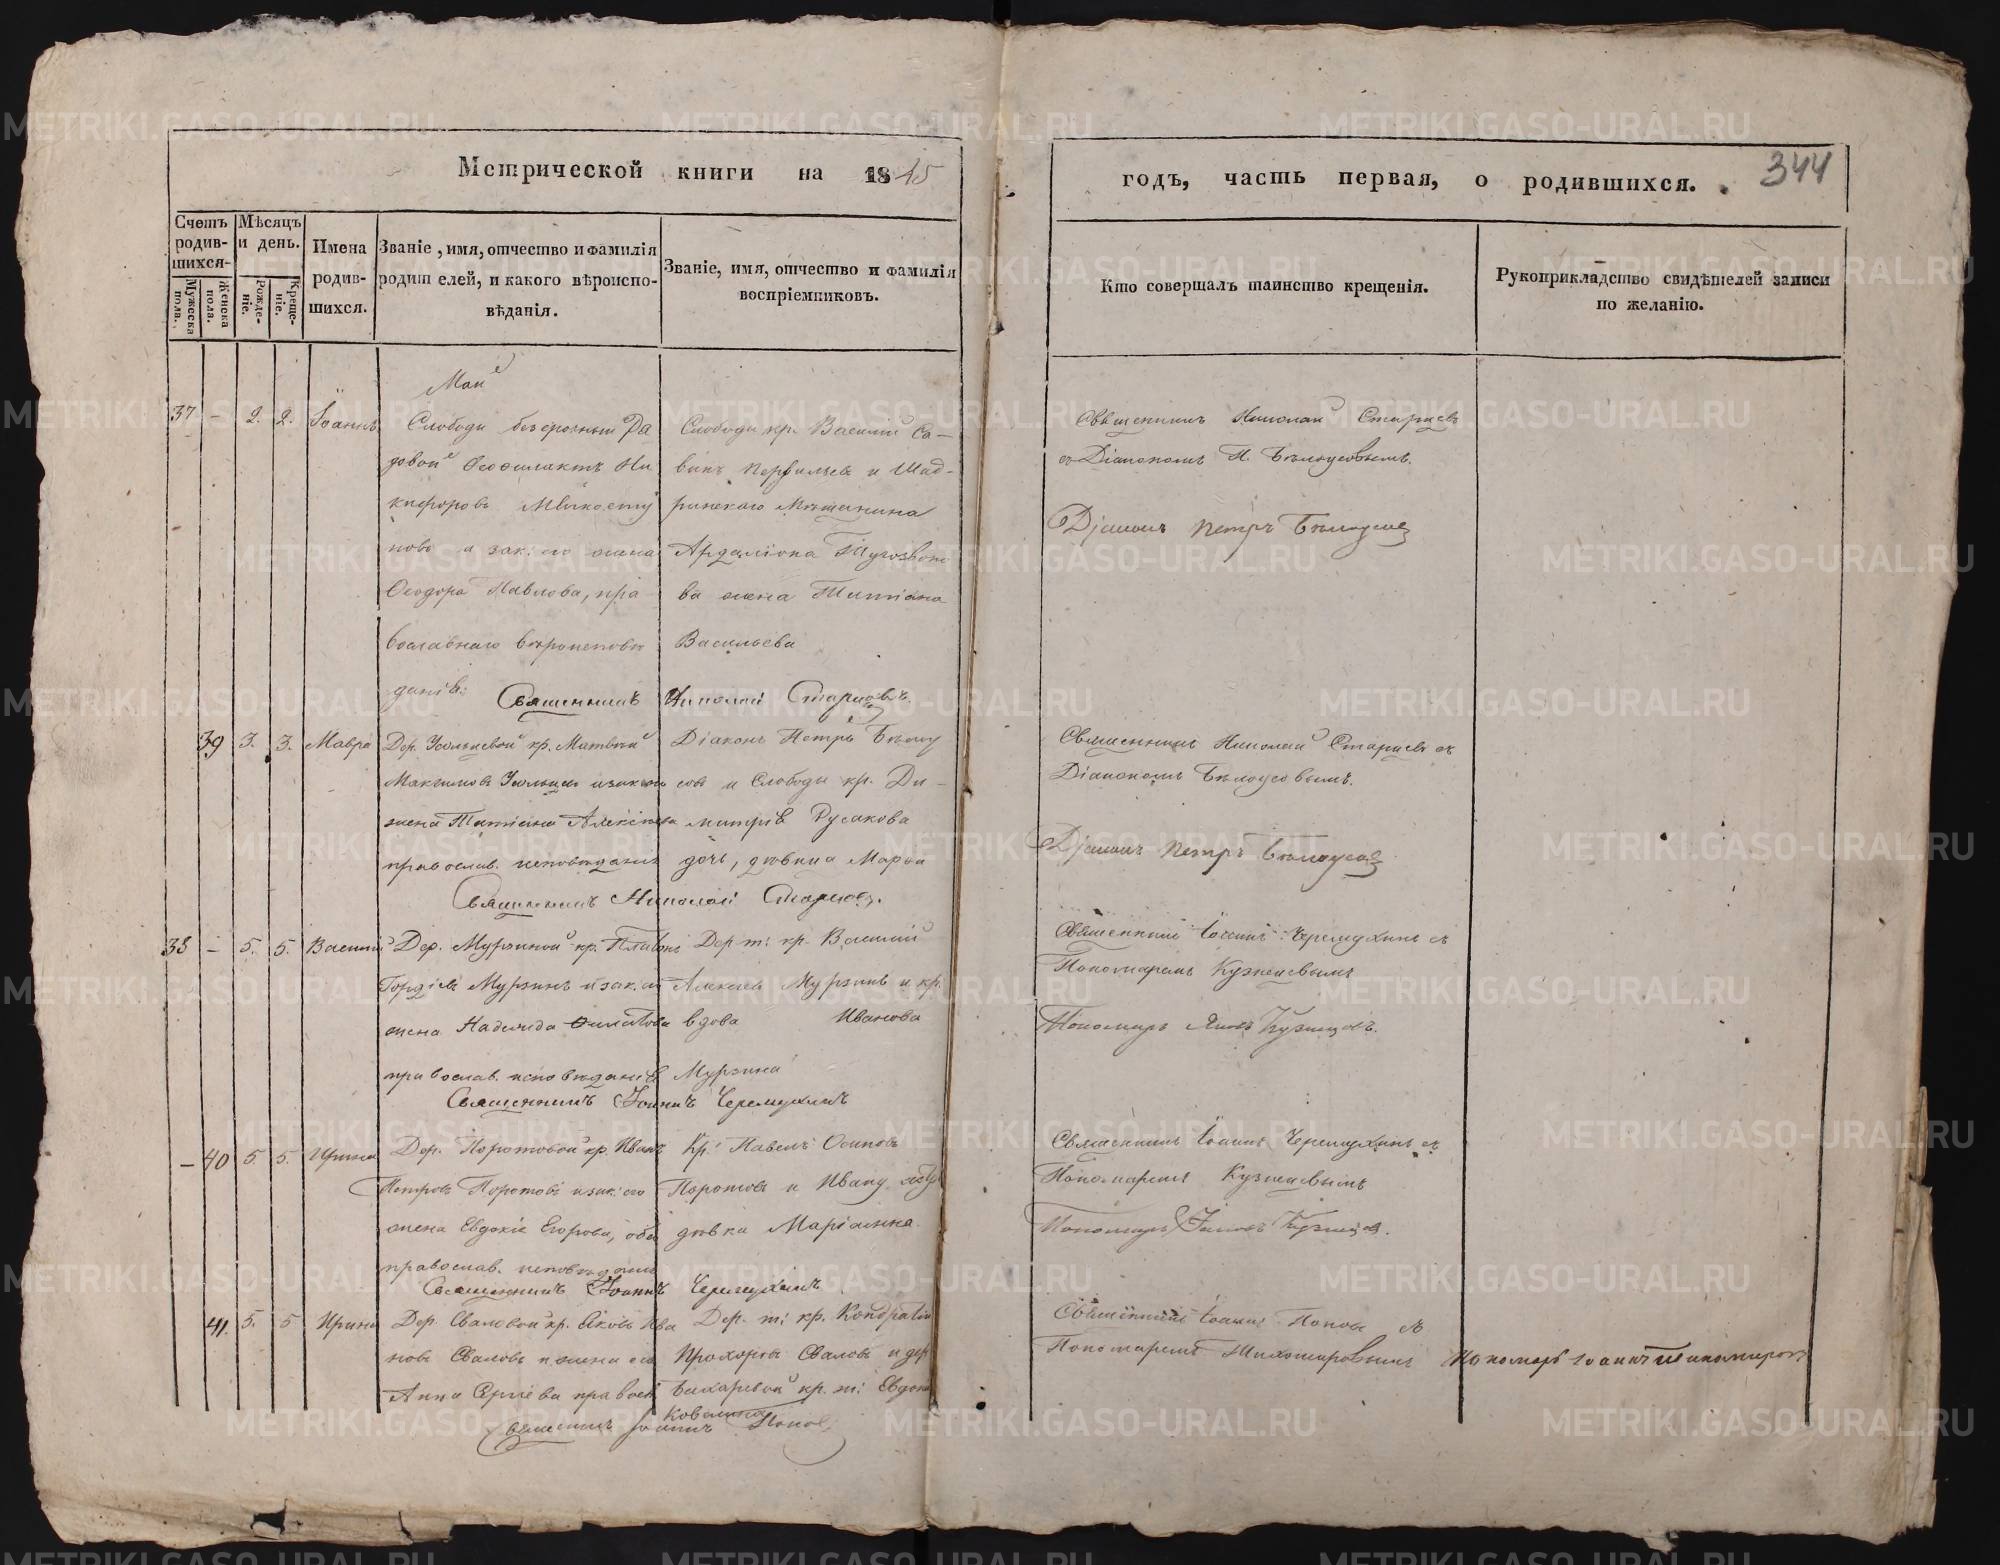 Метрической книги на 1845
годъ, часть первая, о родившихся.
344
Счетъ родившихся.
Мѣсяцъ и день.
Имена родившихся.
Званіе, имя, отчество и фамилія родителей, и какого вѣроисповѣданія.
Званіе, имя, отчество и фамилія воспріемниковъ.
Кто совершалъ таинство крещенія.
Рукоприкладство свидѣтелей записи по желанію.
Мужеска пола.
Женска пола.
Рожденіе.
Крещеніе.
Маій
37 - 2. 2. Іоаннъ
Слободы безсрочный Ря
довой Феофилактъ Ни
кифоровъ
и зак: его жена
Феодора Павлова, пра
вославнаго вѣроисповѣ
данія:
Слободы кр. Василій Са-
винъ и Шад-
ринскаго Мѣщанина
Ардаліона
ва жена Татіана
Васильева
Священникъ Николай Старцевъ
Священникъ Николай Старцевъ
съ Діакономъ П. Бѣлоусовымъ.
Діаконъ Петръ Бѣлоусов
39 3. 3. Мавра
Дер. кр. Матвѣй
Максимовъ и закон
жена Татіана Алексіева
православ. исповѣданія
Діаконъ Петръ Бѣлоу
совъ и Слободы кр. Ди-
митрія Русакова
дочь, дѣвица Марѳа
Священникъ Николай Старцовъ.
Священникъ Николай Старцевъ съ
Діакономъ Бѣлоусовымъ.
Діаконъ Петръ Бѣлоусов
38 - 5. 5. Василій
Дер. Мурзиной кр. Платонъ
Гордіевъ Мурзинъ и зак. ея
жена Надежда Филатова
православ. исповѣданія
Дер. т: кр. Василій
Алексѣевъ Мурзинъ и кр.
вдова Иванова
Мурзина
Священникъ Іоаннъ Черемухинъ
Священникъ Іоаннъ Черемухинъ съ
Пономаремъ Кузнецовымъ
Пономарь Яковъ Кузнецовъ.
- 40 5. 5. Ирина
Дер. Поротовой кр. Иванъ
Петровъ Поротовъ и зак: его
жена Евдокія Егорова, оба
православ. исповѣданія
Кр: Павелъ Осиповъ
Поротовъ и Ивану
дѣвка Маріамна.
Священникъ Іоаннъ Черемухинъ
Священникъ Іоаннъ Черемухинъ съ
Пономаремъ Кузнецовымъ
Пономарь Іаковъ Кузнецов.
41. 5. 5 Ирина
Дер. Сваловой кр. Яковъ Ива
новъ Сваловъ и жена его
Анна Сергіева правосл
Дер. т: кр. Кондратій
Прохоровъ Сваловъ и дер
Бахаревой кр. т: Евдок
Ковалина
Священникъ Іоаннъ Попов
Священникъ Іоаннъ Поповъ съ
Пономаремъ Тихомировымъ
Пономарь Іоаннъ Тихомировъ
METRIKI.GASO-URAL.RU